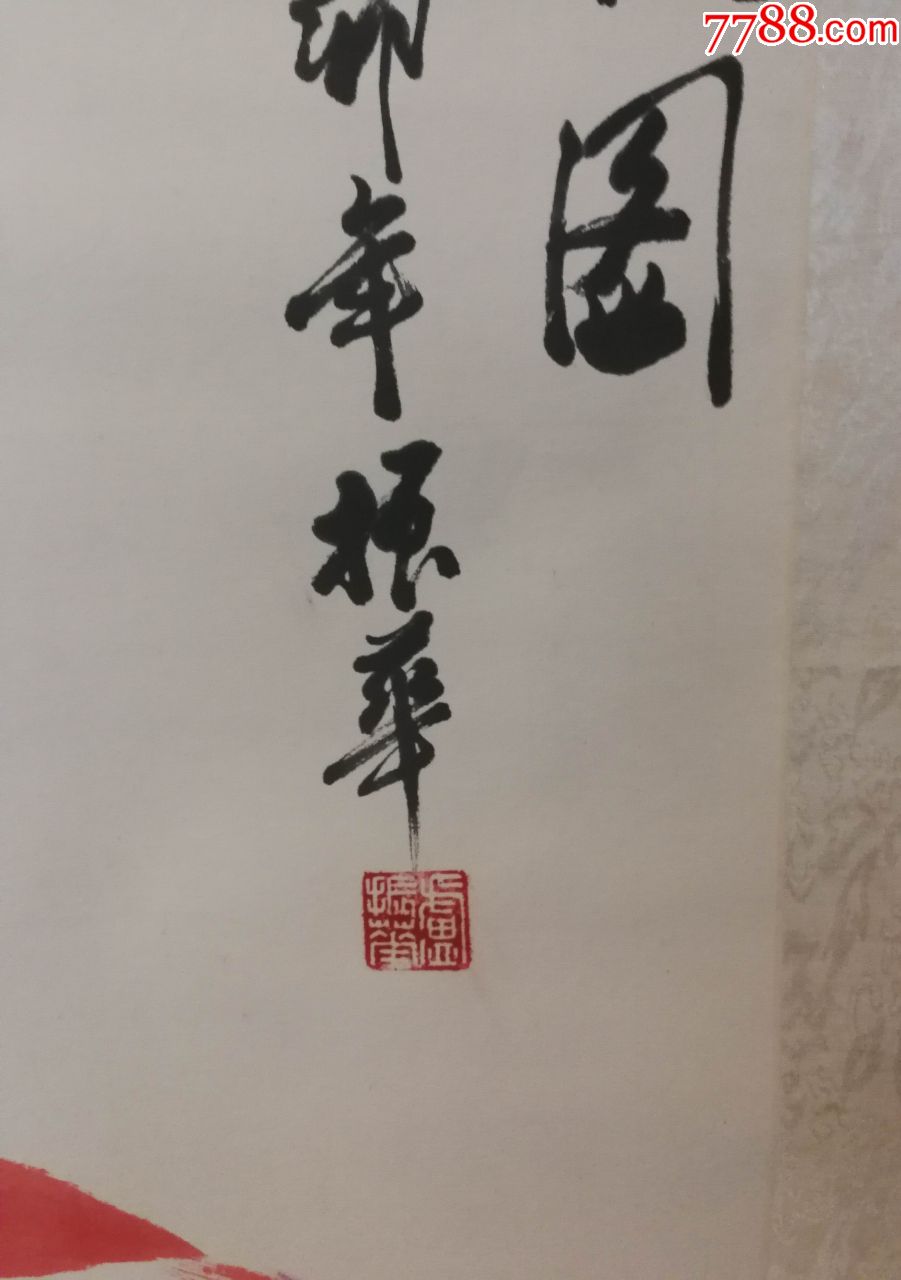 7788.com
圖
卯年振華
盧振華